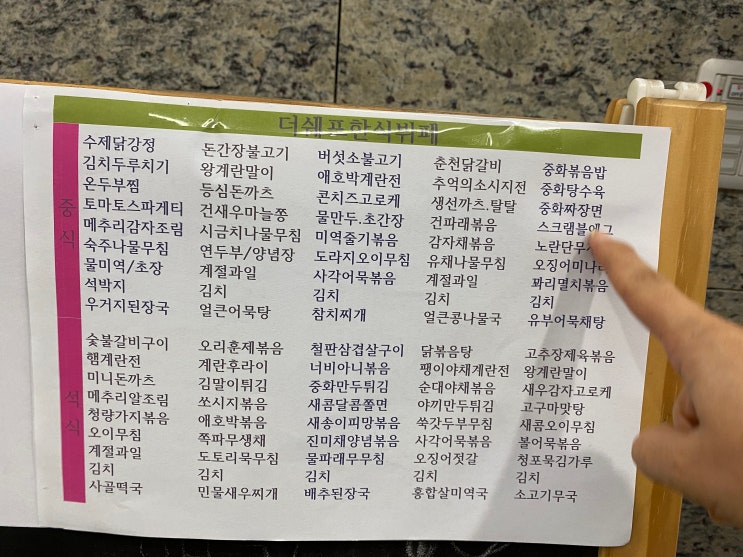 더쉐프한식뷔페
중식
수제닭강정
김치두루치기
온두부찜
토마토스파게티
메추리감자조림
숙주나물무침
물미역/초장
석박지
우거지된장국
돈간장불고기
왕계란말이
등심돈까츠
건새우마늘쫑
시금치나물무침
연두부/양념장
계절과일
김치
얼큰어묵탕
버섯소불고기
애호박계란전
콘치즈고로케
물만두.초간장
미역줄기볶음
도라지오이무침
사각어묵볶음
김치
참치찌개
춘천닭갈비
추억의소시지전
생선까츠.탈탈
건파래볶음
감자채볶음
유채나물무침
계절과일
김치
얼큰콩나물국
중화볶음밥
중화탕수육
중화짜장면
스크램블에그
노란단무
오징어미나
꽈리멸치볶음
김치
유부어묵채탕
석식
숯불갈비구이
햄계란전
미니돈까츠
메추리알조림
청량가지볶음
오이무침
계절과일
김치
사골떡국
오리훈제볶음
계란후라이
김말이튀김
쏘시지볶음
애호박볶음
쪽파무생채
도토리묵무침
김치
민물새우찌개
철판삼겹살구이
너비아니볶음
중화만두튀김
새콤달콤쫄면
새송이피망볶음
진미채양념볶음
물파래무무침
김치
배추된장국
닭볶음탕
팽이야채계란전
순대야채볶음
야끼만두튀김
쑥갓두부무침
사각어묵볶음
오징어젓갈
김치
홍합살미역국
고추장제육볶음
왕계란말이
새우감자고로케
고구마맛탕
새콤오이무침
볼어묵볶음
청포묵김가루
김치
소고기무국